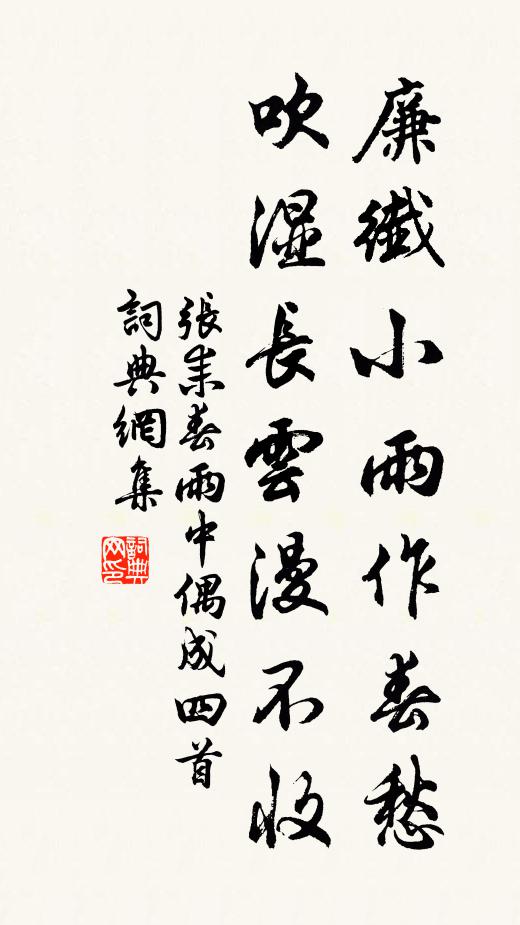 廉纖小雨作春愁
吹濕長雲漫不收
張耒春雨中偶成四首
詞典網集
詞典
网印